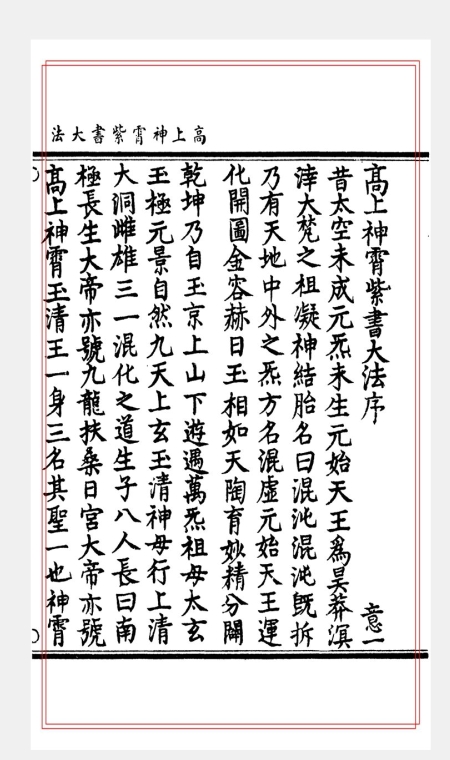 高上神霄紫書大法
高上神霄紫書大法序 意一
昔太空未成元炁未生元始天王爲昊莽溟
涬大梵之祖凝神結胎名曰混沌混沌旣拆
乃有天地中外之炁方名混虛元始天王運
化開圖金容赫日玉相如天陶育妙精分闢
乾坤乃自玉京上山下遊遇萬炁祖母太玄
玉極元景自然九天上玄玉清神母行上清
大洞雌雄三一混化之道生子八人長曰南
極長生大帝亦號九龍扶桑日宮大帝亦號
高上神霄玉清王一身三名其聖一也神霄